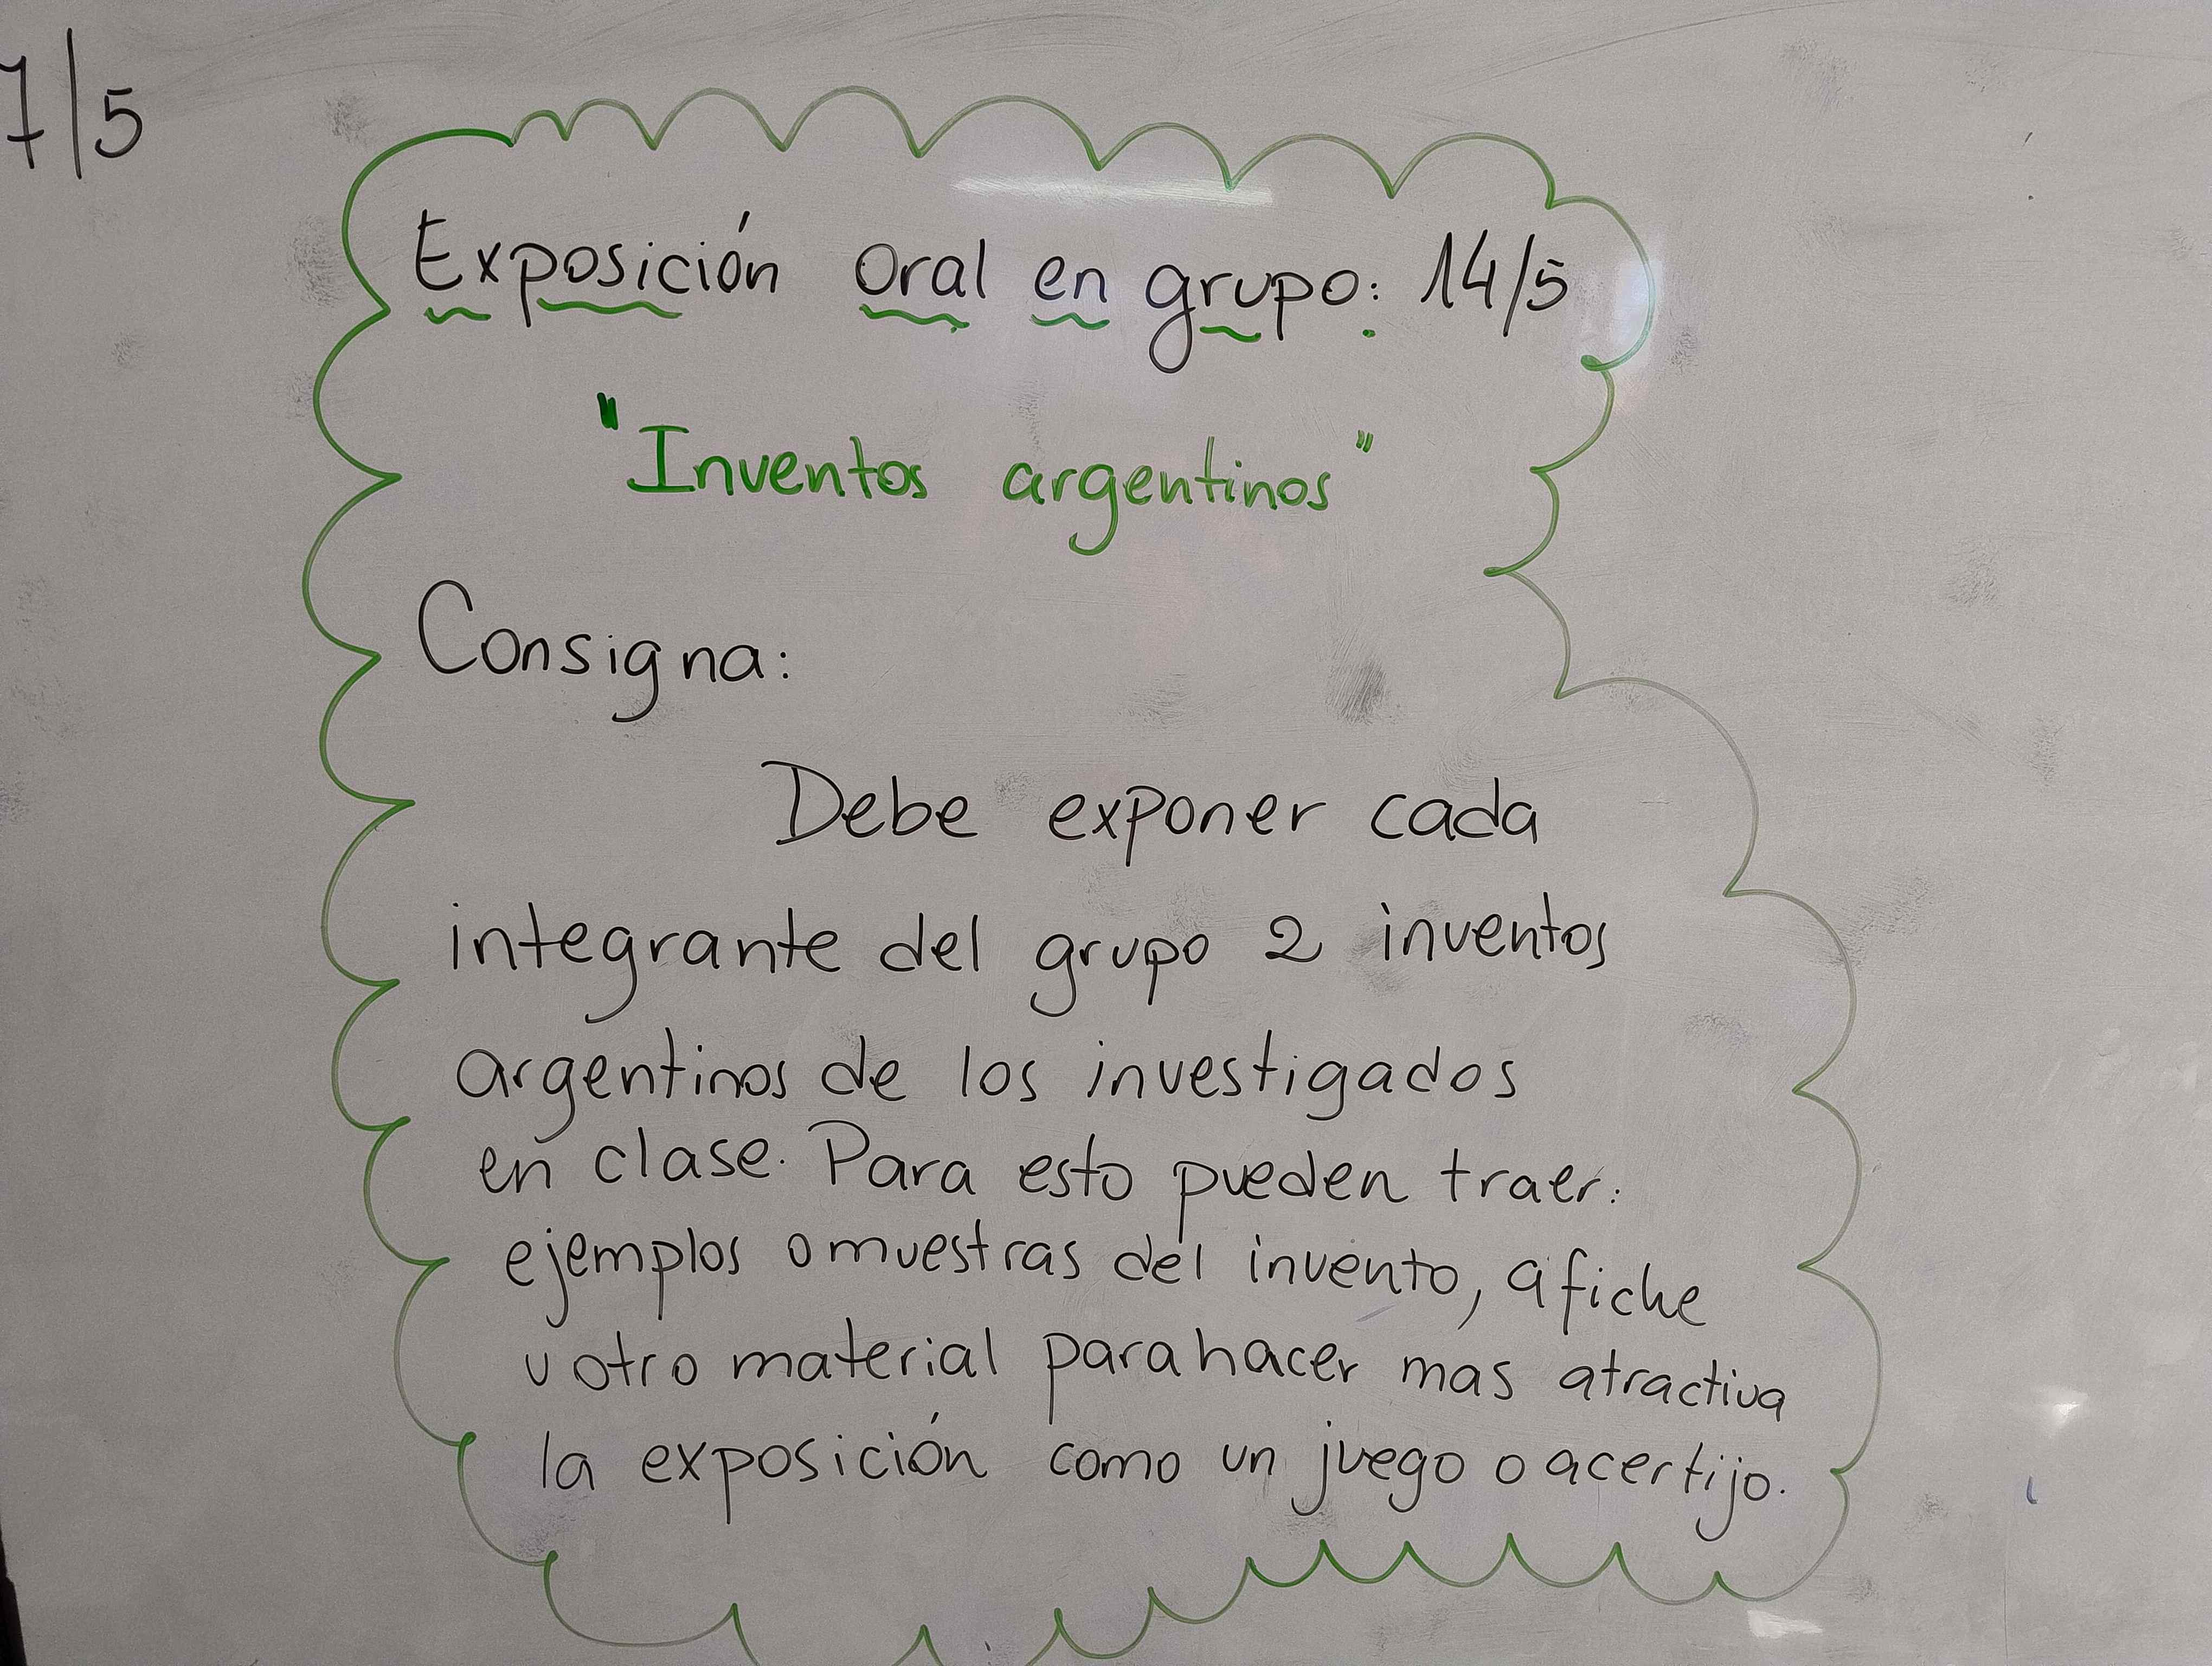 7/5
Exposición Oral en grupo: 14/5
"Inventos argentinos"
Consigna:
Debe exponer cada
integrante del grupo 2 inventos
argentinos de los investigados
en clase. Para esto pueden traer:
ejemplos o muestras del invento, afiche
u otro material para hacer mas atractiva
la exposición como un juego o acertijo.